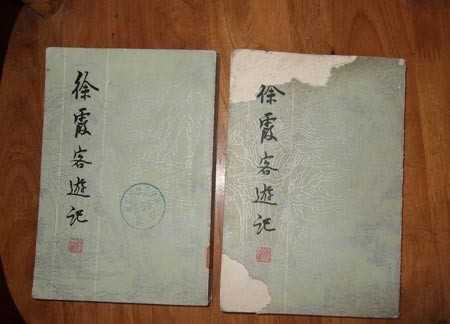 徐霞客遊記
徐霞客遊記